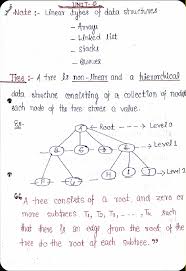 UNIT-5
Note :- Linear types of data structures
- Arrays
- Linked list
- Stacks
- Queues
Tree :- A tree is non-linear and a hierarchical
data structure consisting of a collection of nodes
each node of the tree stores a value.
Ex-
A Root Level 0
Level 1
"A tree consists of a root, and zero or
more subtrees T₁, T₂, T₃, ..., Tk such
that there is an edge from the root of the
tree to the root of each subtree."